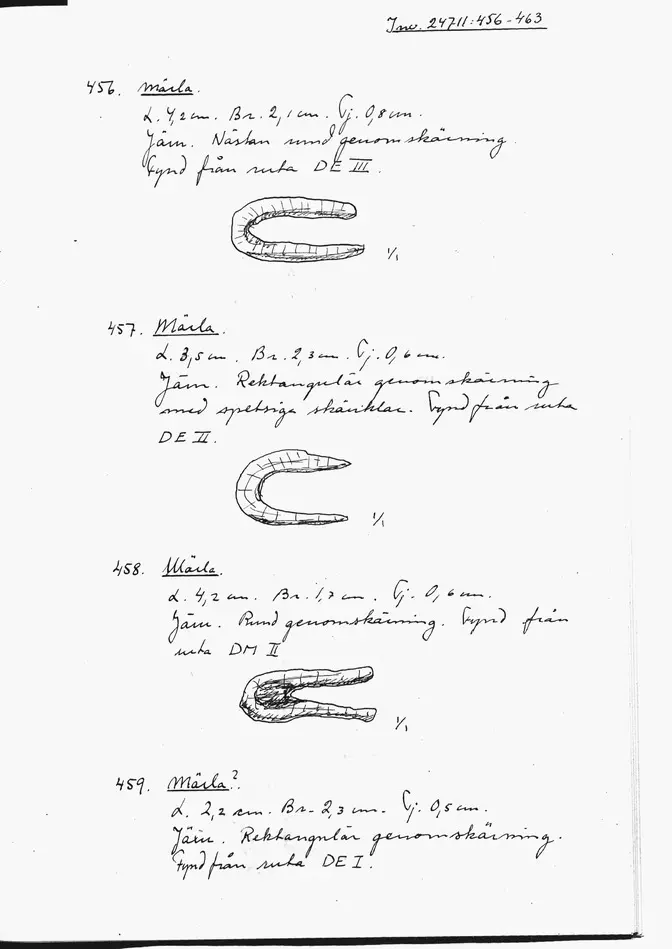 Inv. 24711:456-463
456. Märla.
L. 4,2 cm. Br. 2,1 cm. Tj. 0,8 cm.
Järn. Nästan rund genomskärning.
Fynd från ruta DE III.
1/1
457. Märla.
L. 3,5 cm. Br. 2,3 cm. Tj. 0,6 cm.
Järn. Rektangulär genomskärning
med spetsiga skänklar. Fynd från ruta
DE II.
1/1
458. Märla.
L. 4,2 cm. Br. 1,7 cm. Tj. 0,6 cm.
Järn. Rund genomskärning. Fynd från
ruta DM II
1/1
459. Märla?.
L. 2,2 cm. Br. 2,3 cm. Tj. 0,5 cm.
Järn. Rektangulär genomskärning.
Fynd från ruta DE I.